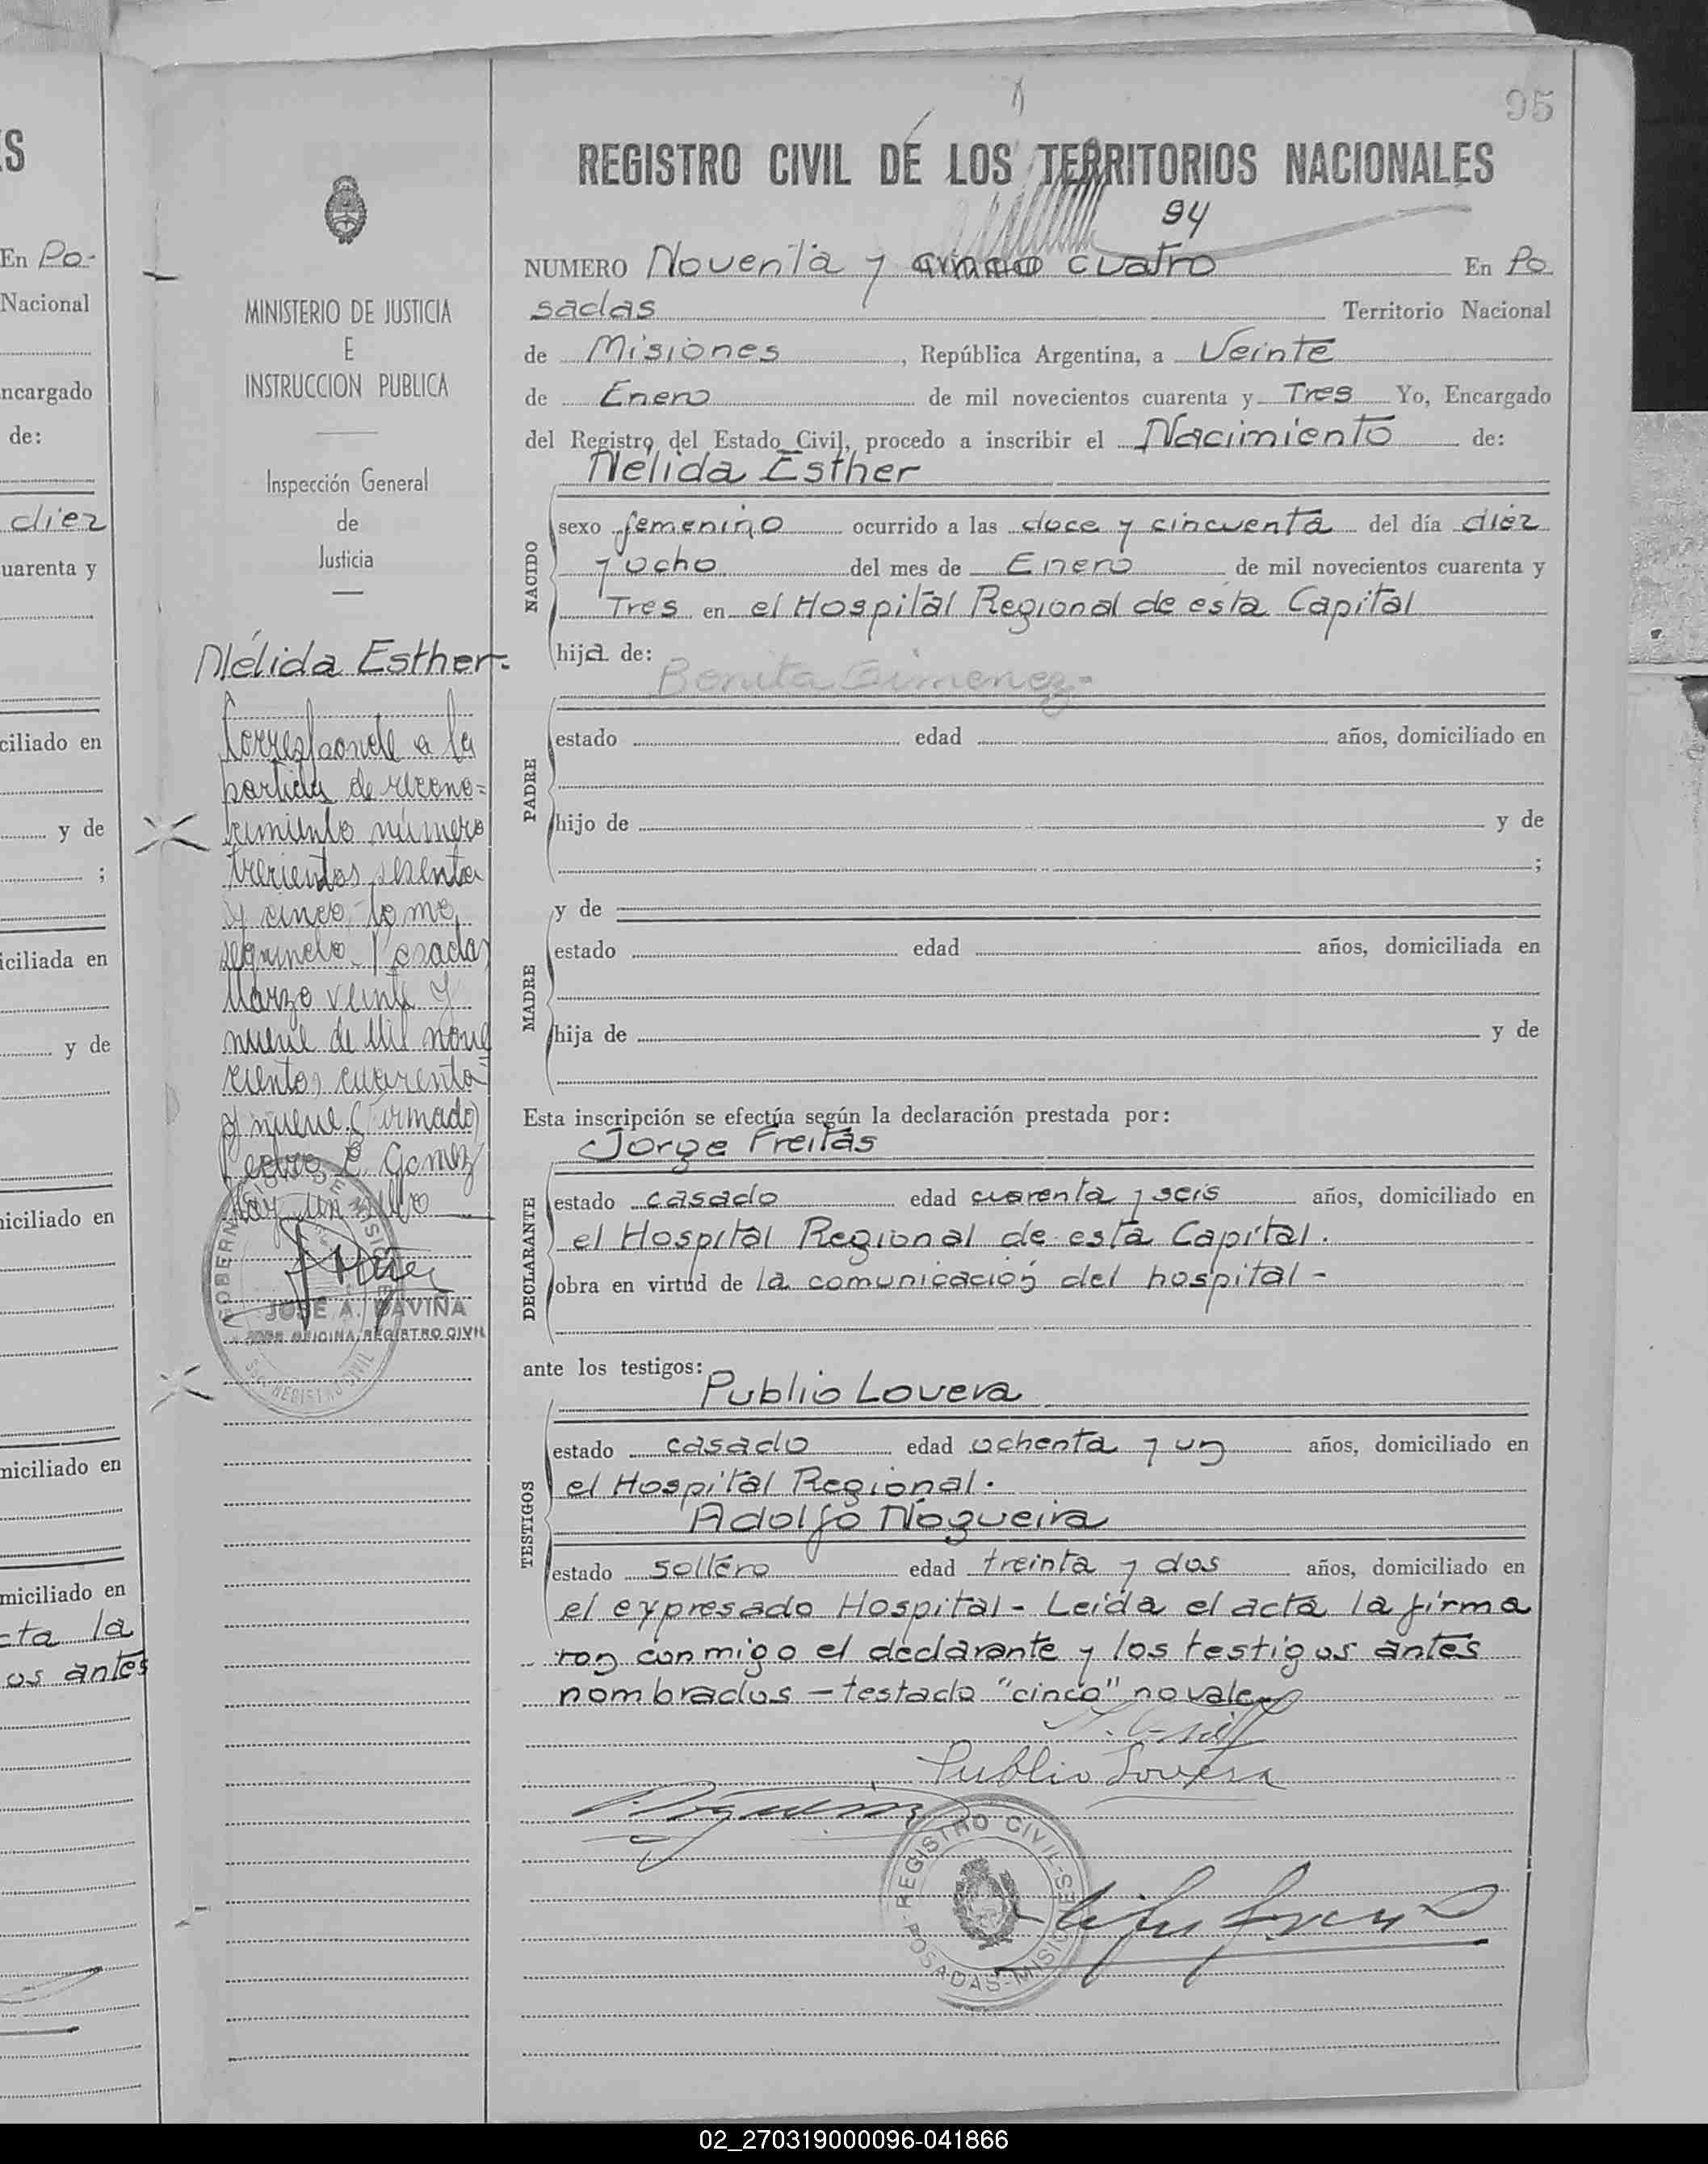 95
REGISTRO CIVIL DE LOS TERRITORIOS NACIONALES
94
NUMERO Noventa y cinco cuatro En Po
sadas Territorio Nacional
de Misiones, República Argentina, a Veinte
de Enero de mil novecientos cuarenta y Tres Yo, Encargado
del Registro del Estado Civil, procedo a inscribir el Nacimiento de:
Nélida Esther
NACIDO
sexo femenino ocurrido a las doce y cincuenta del día diez
y ocho del mes de Enero de mil novecientos cuarenta y
Tres en el Hospital Regional de esta Capital
hija de:
Benita Gimenez-
PADRE
estado edad años, domiciliado en
hijo de y de
;
MADRE
y de
estado edad años, domiciliada en
hija de y de
Esta inscripción se efectúa según la declaración prestada por:
Jorge Freitas
DECLARANTE
estado casado edad cuarenta y seis años, domiciliado en
el Hospital Regional de esta Capital.
obra en virtud de la comunicación del hospital -
ante los testigos:
Publio Lovera
TESTIGOS
estado casado edad ochenta y un años, domiciliado en
el Hospital Regional.
Adolfo Nogueira
estado soltero edad treinta y dos años, domiciliado en
el expresado Hospital - Leida el acta la firma
ron conmigo el declarante y los testigos antes
nombrados - testado "cinco" no vale
Publio Lovera
REGISTRO CIVIL-SE
POSADAS-MISIONES
MINISTERIO DE JUSTICIA
E
INSTRUCCION PUBLICA
Inspección General
de
Justicia
Nélida Esther-
Corresponde a la
partida de recono=
cimiento número
trecientos sesenta
y cinco, tomo
segundo. Posadas
Marzo veinte y
nueve de Mil nove
cientos cuarenta
y nueve. (Firmado)
Pedro E. Gomez
Hay un sello
JOSE A. DAVIÑA
JEFE OFICINA REGISTRO CIVIL
S
En Po-
Nacional
ncargado
de:
diez
uarenta y
ciliado en
y de
;
iciliada en
y de
iciliado en
miciliado en
miciliado en
cta la
os antes
02_270319000096-041866